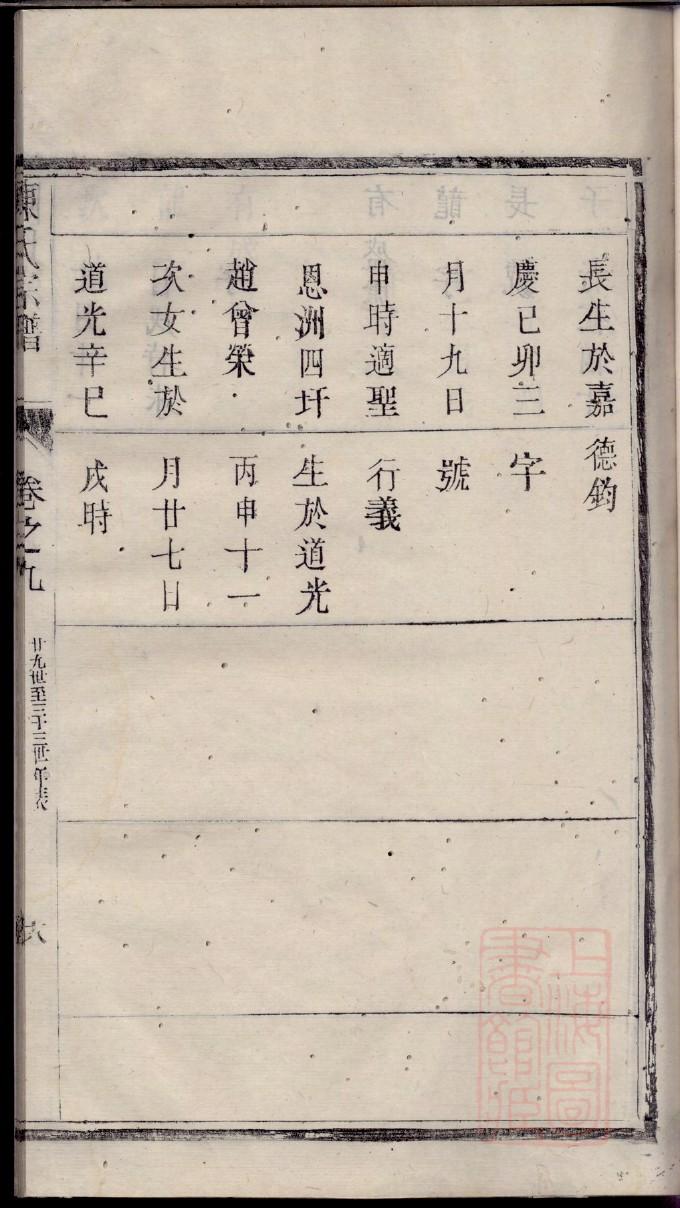 長生於嘉
慶已卯三
月十九日
申時適聖
恩洲四圩
趙曾榮
次女生於
道光辛巳
德鈞
字
號
行義
生於道光
丙申十一
月廿七日
戌時
陳氏宗譜
卷之九
廿九世至三十三世年表
六
上海圖書館藏